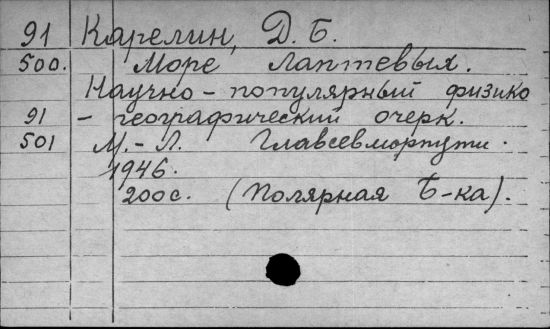 91 Карелин, Д. Б.
500. Море Лаптевых.
Научно-популярный физико
91 - географический очерк.
501 М.-Л. Главсевморпути.
1946.
200с. (Полярная Б-ка).